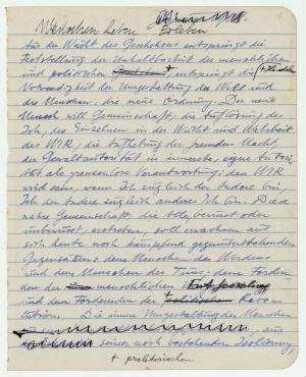 Menschen Leben Erleben
Aus der Wucht des Geschehens entspringt die
Feststellung der Unhaltbarkeit der menschlichen
und politischen entspringt die
Notwendigkeit der Umgestaltung der Welt und
des Menschen, die neue Ordnung. Der neue
Mensch will Gemeinschaft, die Auflösung des
Ich, des Einzelnen in der Wucht und Wahrheit
des WIR, die Aufhebung der fremden Macht,
der Gewaltautorität in innerste, eigne Autori-
tät als grenzenlose Verantwortung: dem WIR
wird sein, wenn Ich zugleich der Andere bin,
Ich der Andere zugleich andres Ich bin. Diese
neue Gemeinschaft, die Alle, bewusst oder
unbewusst, erstreben, soll erwachsen aus
sich heute noch kämpfend gegenüberstehenden
Gegensätzen: dem Menschen des Werdens
und dem Menschen des Tuns; dem Fordern
der menschlichen
und dem Fordernden der Revo-
lution. Die innere Umgestaltung des Menschen
aus seiner noch verstockten Isolierung,
+ proletarischen